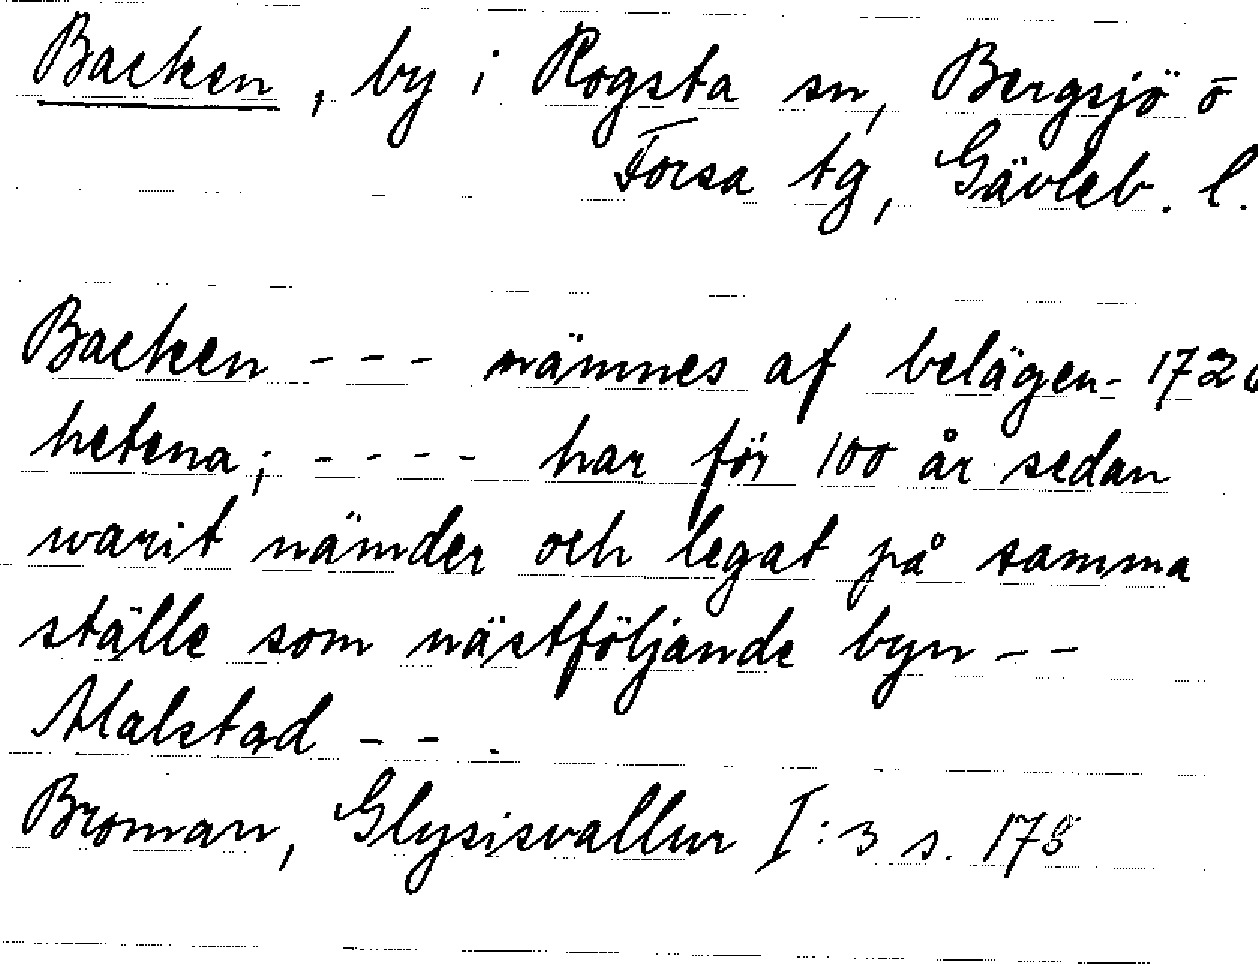 Backen, by i Rogsta sn, Bergsjö o
Forsa tg, Gävleb. l.
Backen - - - nämnes af belägen- 1720
hetena; - - - - har för 100 år sedan
warit nämder och legat på samma
ställe som nästföljande byn - -
Malstad - - .
Broman, Glysisvallur I:3 s. 178